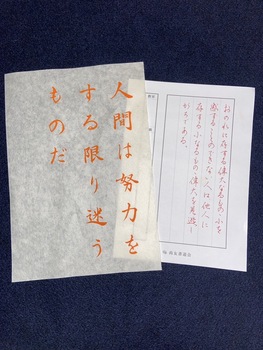 人間は努力を
する限り迷う
ものだ
おのれに存する偉大なるものの小を
感ずることのできない人は他人に
存する小なるものの偉大を見逃し
がちである。